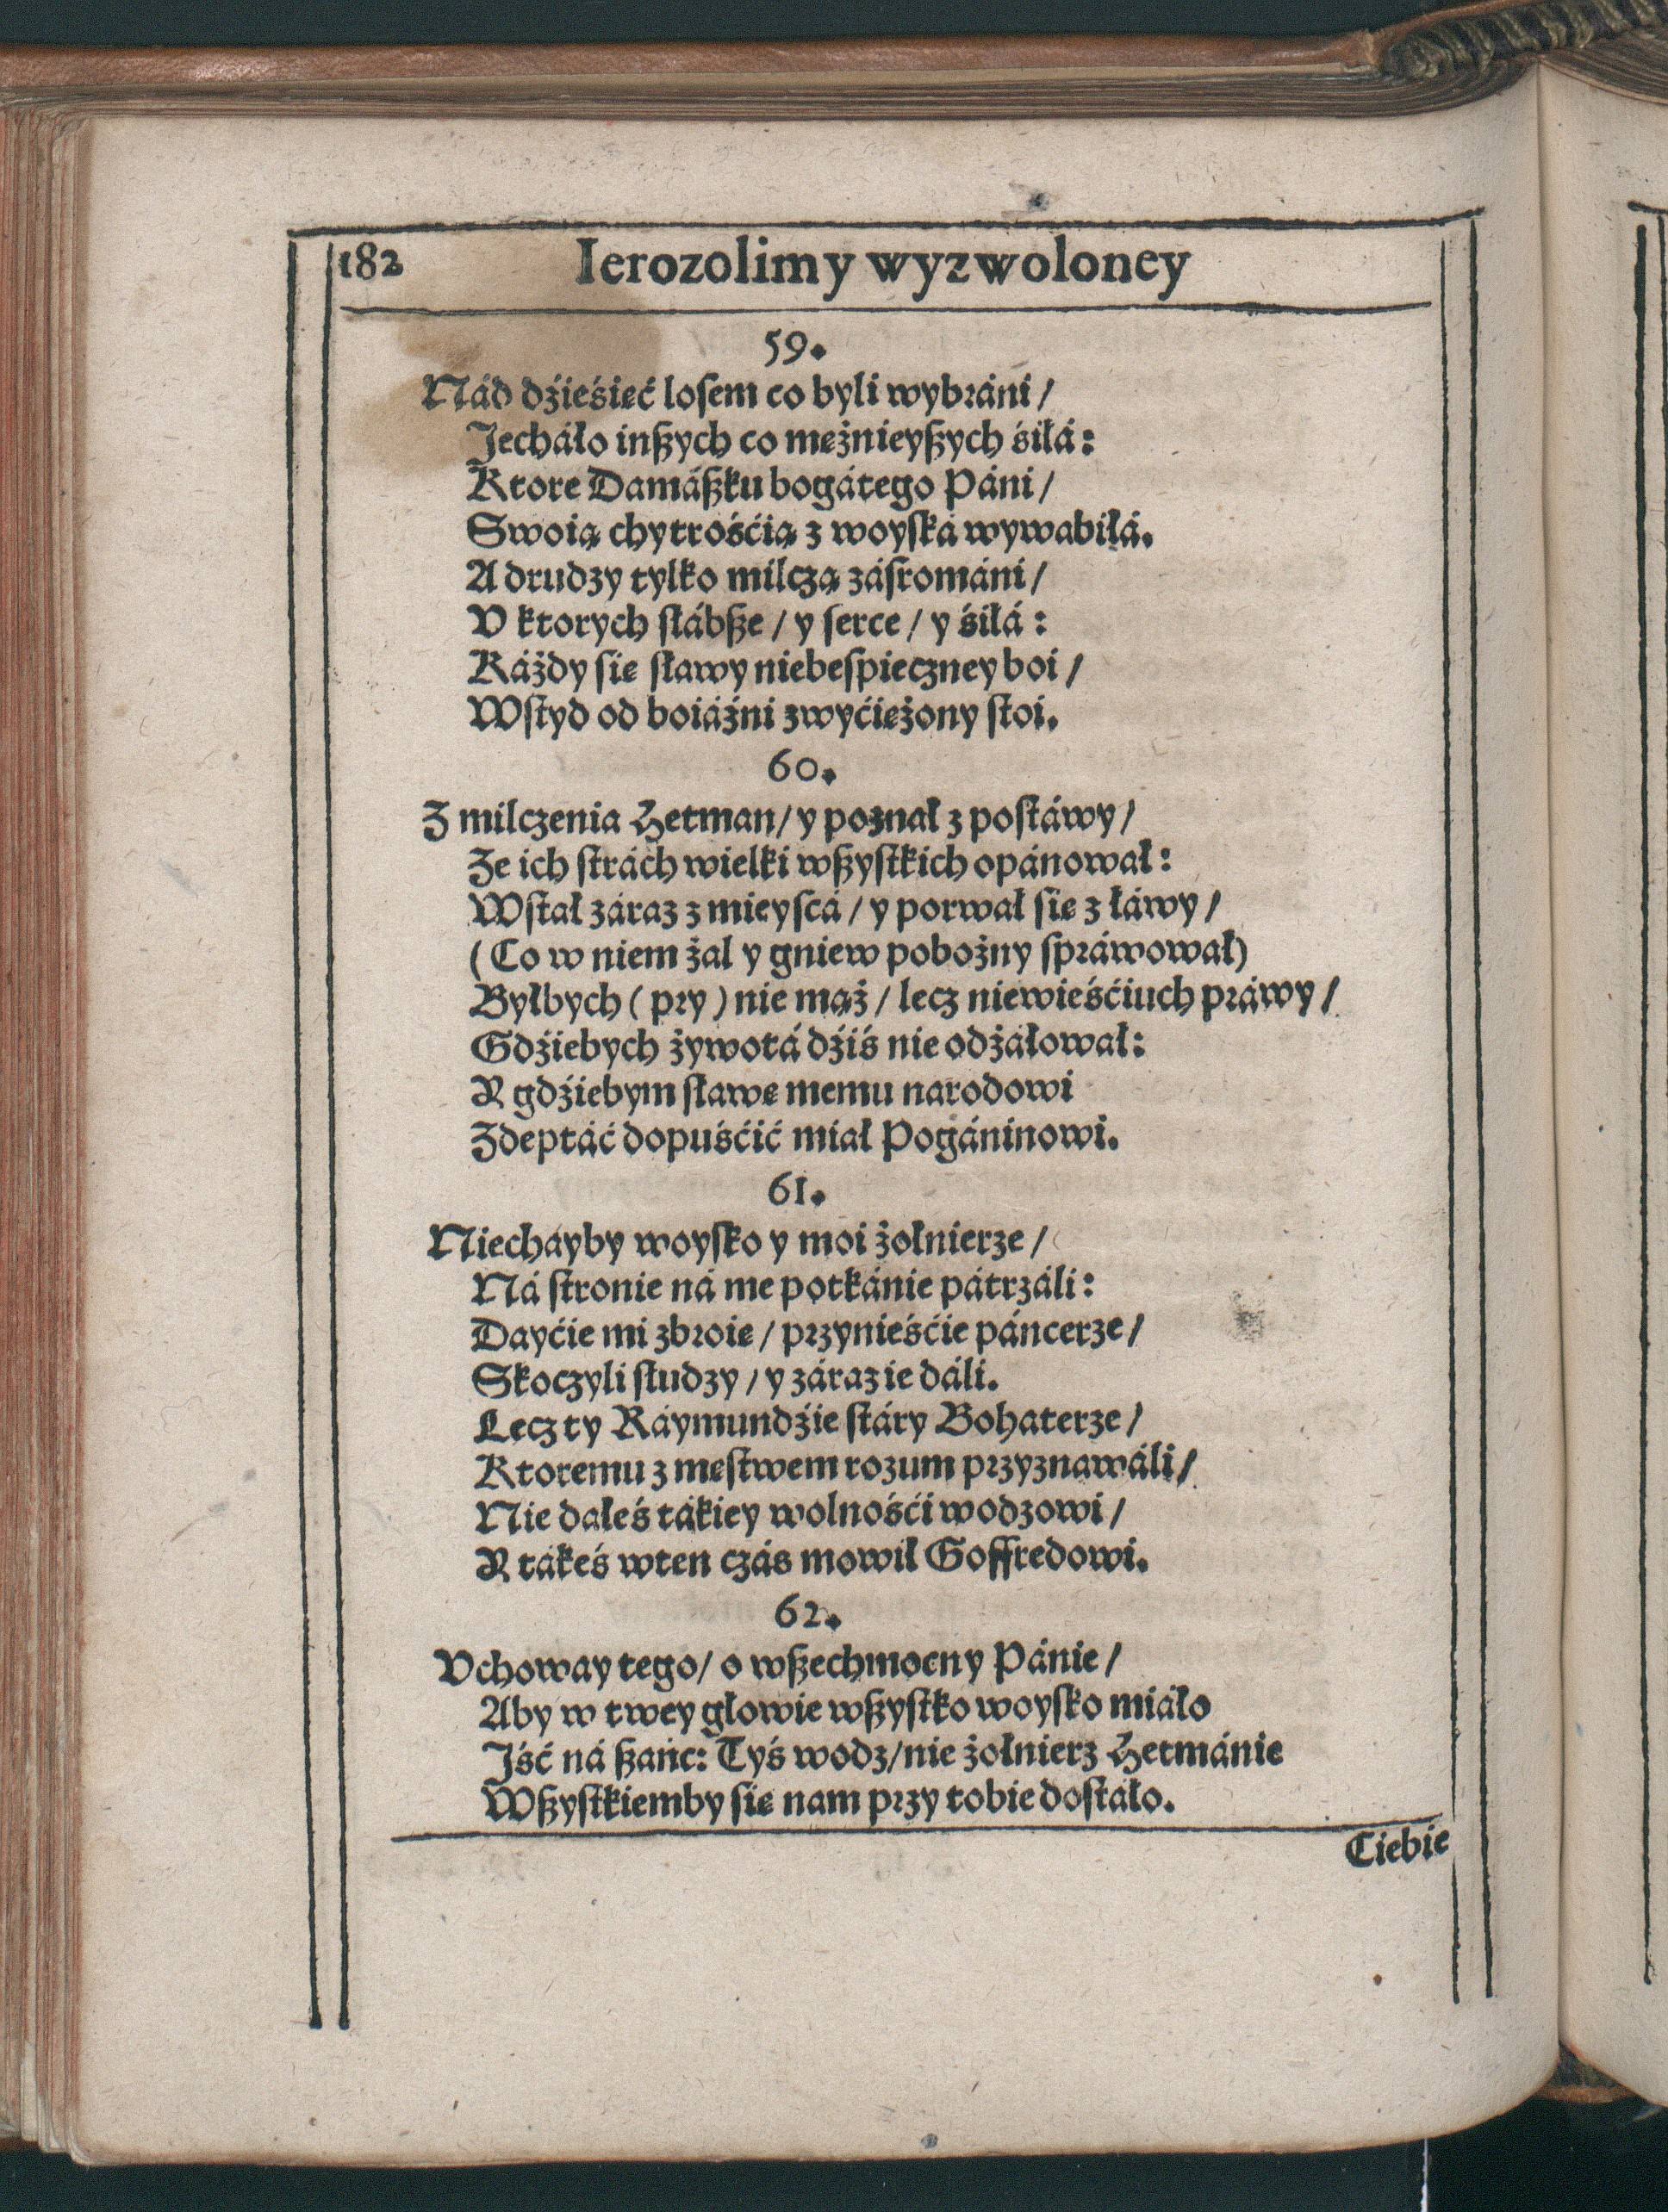 182 Ierozolimy wyzwoloney
59.
Nád dźieśięć losem co byli wybráni /
Jecháło inßych co mężnieyßych śiłá:
Ktore Damáßku bogátego Páni /
Swoią chytrośćią z woyská wywabiłá.
A drudzy tylko milczą zásrománi /
V ktorych słábße / y serce / y śiłá:
Káżdy się sławy niebespieczney boi /
Wstyd od boiáźni zwyćiężony stoi.
60.
Z milczenia Hetman / y poznał z postáwy /
Ze ich strách wielki wßystkich opánował:
Wstał záraz z mieyscá / y porwał się z łáwy /
(Co w niem żal y gniew pobożny spráwował)
Byłbych (pry) nie mąż / lecz niewieśćiuch práwy /
Gdźiebych żywotá dźiś nie odżáłował:
Y gdźiebym sławę memu narodowi
Zdeptáć dopuśćić miał Pogáninowi.
61.
Niechayby woysko y moi żołnierze /
Ná stronie ná me potkánie pátrzáli:
Dayćie mi zbroię / przynieśćie páncerze /
Skoczyli słudzy / y záraz ie dáli.
Lecz ty Ráymundźie stáry Bohaterze /
Ktoremu z męstwem rozum przyznawáli /
Nie dałeś tákiey wolnośći wodzowi /
Y tákeś wten czás mowił Goffredowi.
62.
Vchoway tego / o wßechmocny Pánie /
Aby w twey głowie wßystko woysko miáło
Jść ná ßańc: Tyś wodz / nie żołnierz Hetmánie
Wßystkiemby się nam przy tobie dostáło.
Ciebie